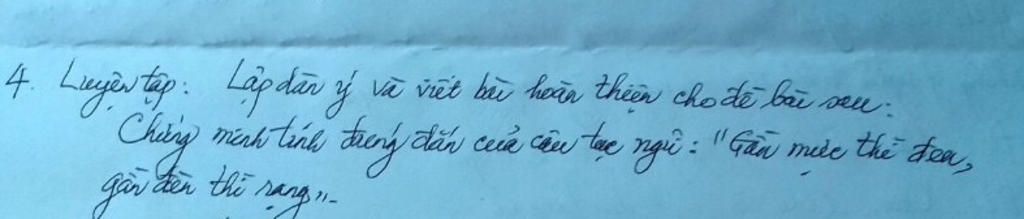 4. Luyện tập: Lập dàn ý và viết bài hoàn thiện cho đề bài sau:
Chứng minh tính đúng đắn của câu tục ngữ: "Gần mực thì đen,
gần đèn thì rạng".